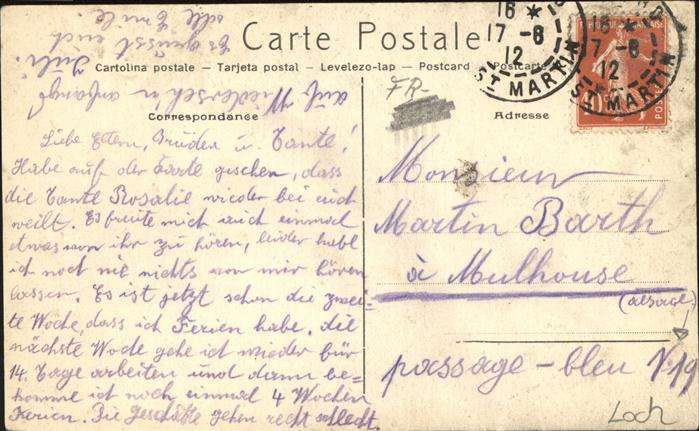 Carte Postale
Cartolina postale — Tarjeta postal — Levelezo-lap — Postcard — Postcarte
Correspondance
Adresse
FR-
16 * 
17 - 8
12
ST MARTIN
16 *
17 - 8
12
ST MARTIN
POSTES
Liebe Eltern, Brüder u. Tante!
Habe auf der Karte gesehen, dass
die Tante Rosalie wieder bei euch
weilt. Es freute mich auch einmal
etwas von ihr zu hören, leider habe
ich noch nie nichts von mir hören
lassen. Es ist jetzt schon die zwei-
te Woche, dass ich Ferien habe, die
nächste Woche gehe ich wieder für
14 Tage arbeiten und dann be-
komme ich noch einmal 4 Wochen
Ferien. Die Geschäfte gehen recht schlecht.
Auf Wiedersehn anfangs
Juli.
Es grüsst euch
alle Emile
Monsieur
Martin Barth
à Mulhouse
(alsace)
passage - bleu N. 19
Loch